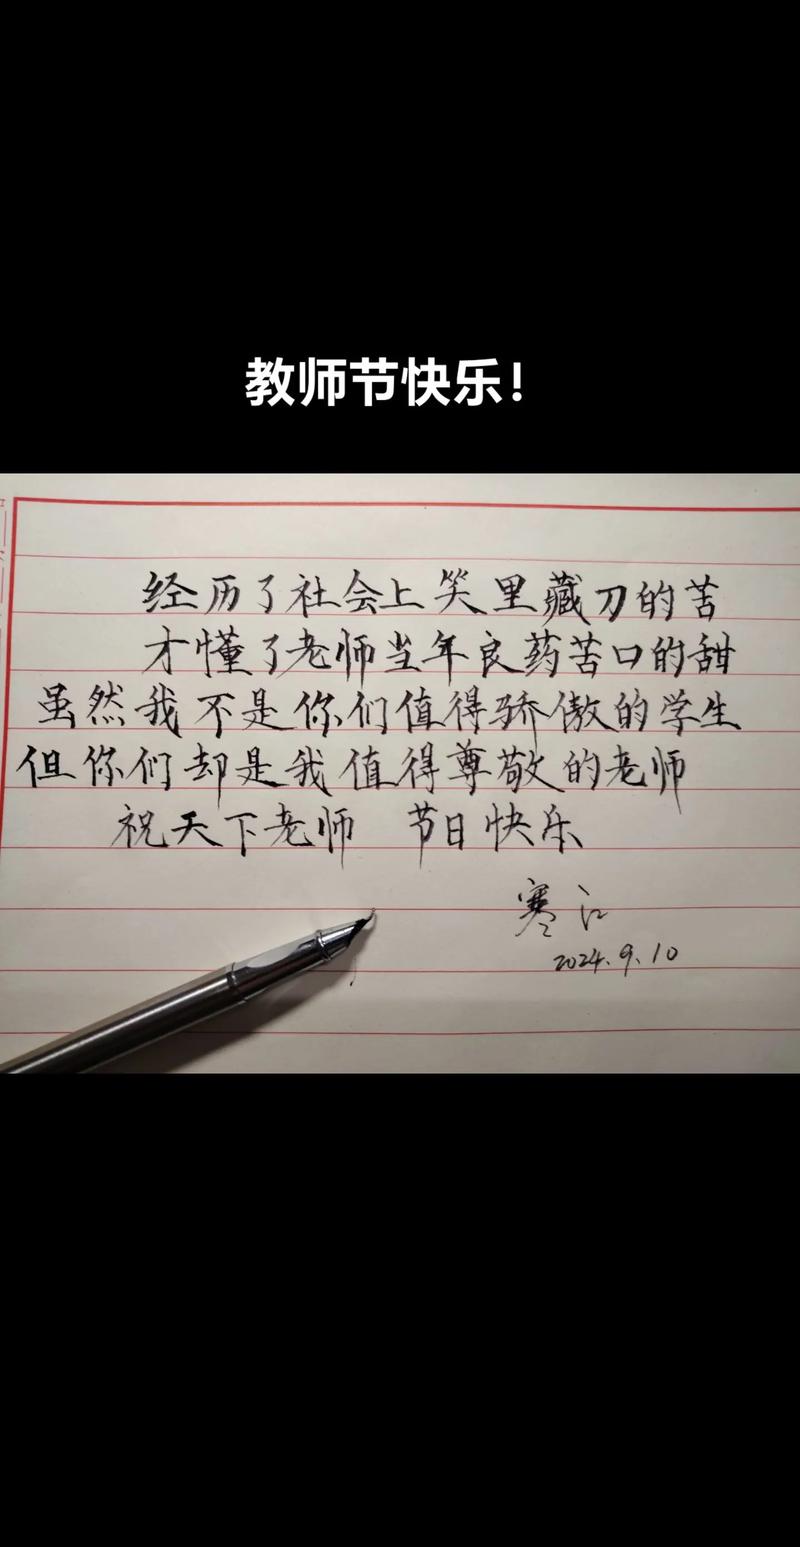 教师节快乐！
经历了社会上笑里藏刀的苦
才懂了老师当年良药苦口的甜
虽然我不是你们值得骄傲的学生
但你们却是我值得尊敬的老师
祝天下老师 节日快乐
寒江
2024.9.10